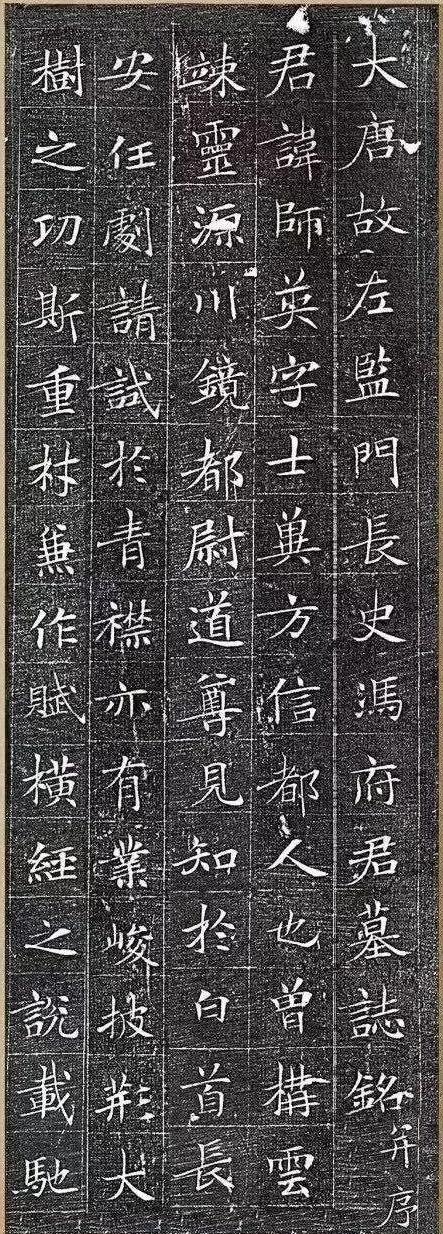 大唐故左監門長史馮府君墓誌銘并序
君諱師英字士英方信都人也曾構雲
竦靈源川鏡都尉道尊見知於白首長
安任劇請試於青襟亦有業峻披荊大
樹之功斯重材兼作賦橫經之說載馳